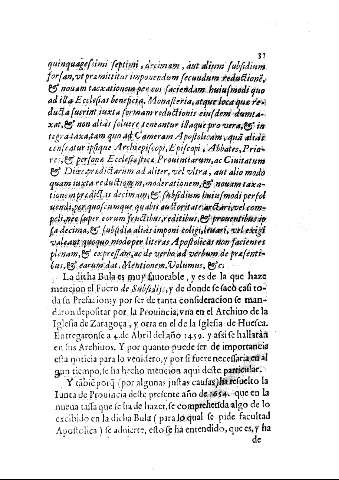 31
quinquagesimi septimi, decimam, aut alium subsidium
forsan, ut præmittitur imponendum secundum reductionẽ,
& nouam tacxationem per eus faciendam huiusmodi quo
ad illa Ecclesias beneficia, Monasteria, atque loca que re-
ducta fuerint iuxta formam reductionis eiusdem dumta-
xat, & non aliàs soluere teneantur illaque pro vera, & in-
tegra taxata, tam quo ad Cameram Apostolicam, quã aliàs
censeatur ipsique Archiepiscopi, Episcopi, Abbates, Prio-
res, & persona Ecclesiastica Prouintiarum, ac Ciuitatum
& Diœs prædictarum ad aliter, vel vltra, aut alio modo
quam iuxta reductionem, moderationem, & nouam taxa-
tionem prædictas decimam, & subsidium huiusmodi persol
uendi per quoscumque quabis auctoritate arctari, vel com-
pelli, nec super eorum fructibus, reditibus, & prouentibus ip
sa decima, & subsidia aliàs imponi exigi, leuari, vel exigi
valeant quoquo modo per literas Apostolicas non facienses
plenam, & expressam, ac de verbo ad verbum de præsenti-
bus, & earum dat. Mentionem. Volumus, &c.
La dicha Bula es muy fauorable, y es de la que haze
mencion el Fuero de Subsidijs, y de donde se sacò casi to-
da su Prefacion; y por ser de tanta consideracion se man-
daron depositar por la Prouincia, vna en el Archiuo de la
Iglesia de Zaragoça, y otra en el de la Iglesia de Huesca.
Entregaronse a 4. de Abril del año 1459. y assi se hallaràn
en sus Archiuos. Y por quanto puede ser de importancia
esta noticia para lo venidero, y por si fuere necessaria en al
gun tiempo, se ha hecho mencion aqui deste particular.
Y tãbiẽ porq̃ (por algunas justas causas) ha resuelto la
Iunta de Prouincia deste presente año de 1654. que en la
nueua tassa que se ha de hazer, se comprehenda algo de lo
escibido en la dicha Bula (para lo qual se pide facultad
Apostolica) se aduierte, esto se ha entendido, que es, y ha
de